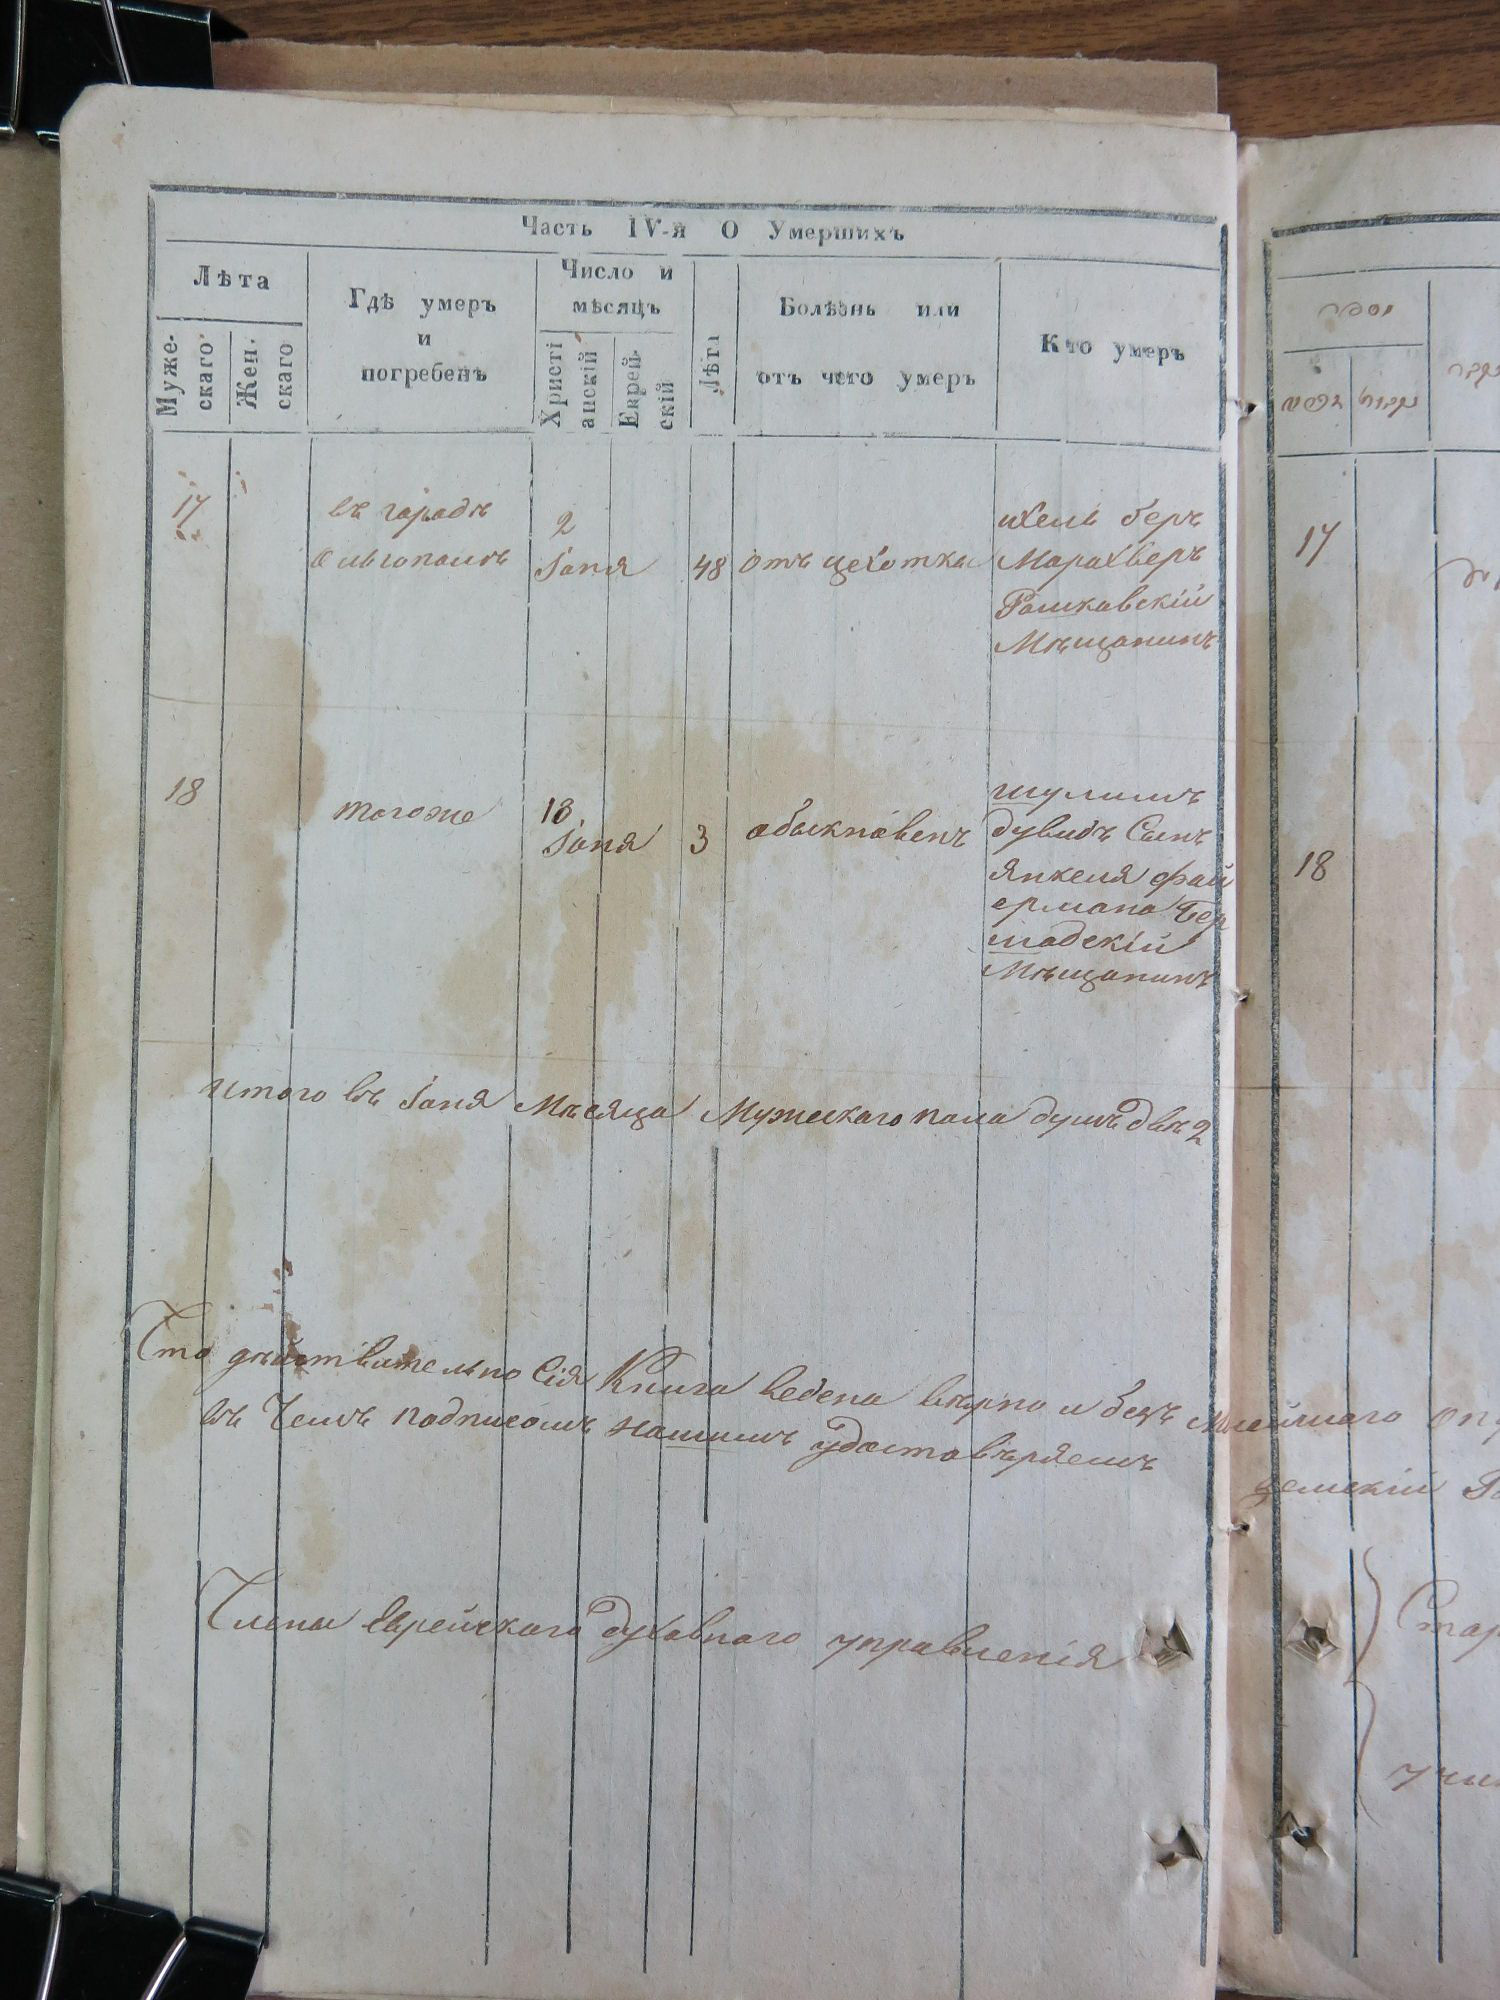 Часть IV-я О Умершихъ
Лѣта
Муже-
скаго
Жен.
скаго
Гдѣ умеръ
и
погребенъ
Число и
мѣсяцъ
Христі
анскій
Еврей-
скій
Лѣта
Болѣзнь или
отъ чего умеръ
Кто умеръ
17
въ городѣ
Ольгополѣ
2
Іюня
48
отъ чехотки
ихель беръ
Марахверъ
Рашкавскій
Мѣщанинъ
18
тогоже
18
Іюня
3
обыкновенъ
шулимъ
дувидъ Сынъ
янкеля фай
ермана Бер
шадскій
Мѣщанинъ
итого въ Іюня Мѣсяца Мужескаго пола душъ двѣ 2
Что дѣйствительно Сія Книга ведена вѣрно и безъ
въ Чемъ подписомъ нашимъ удостовѣряемъ
Члены Еврейскаго духовнаго управленія
17
18